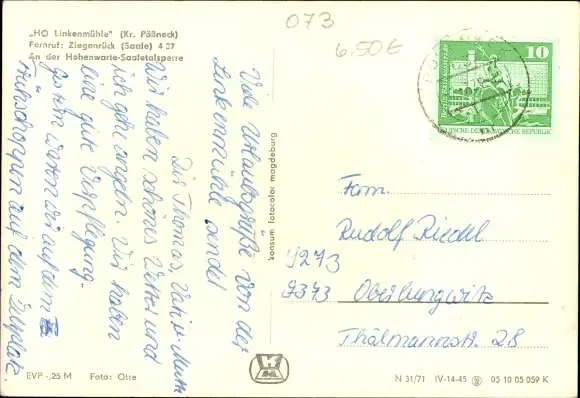 „HO Linkenmühle" (Kr. Pößneck)
Fernruf: Ziegenrück (Saale) 4 27
An der Hohenwarte-Saaletalsperre
073
6.50€
10
Berlin
DEUTSCHE DEMOKRATISCHE REPUBLIK
Viele Urlaubsgrüße von der
Linkenmühle sendet
Dir Thomas, Vati u. Mutti
Wir haben schönes Wetter und
ich geh angeln. Wir haben
eine gute Verpflegung.
Gestern waren wir auf dem
auf dem Zeltplatz
konsum fotocolor magdeburg
Fam.
Rudolf Riedel
9273
9373 Oberlungwitz
Thälmannstr. 28
EVP -,25 M Foto: Otte
N 31/71 IV-14-45 05 10 05 059 K